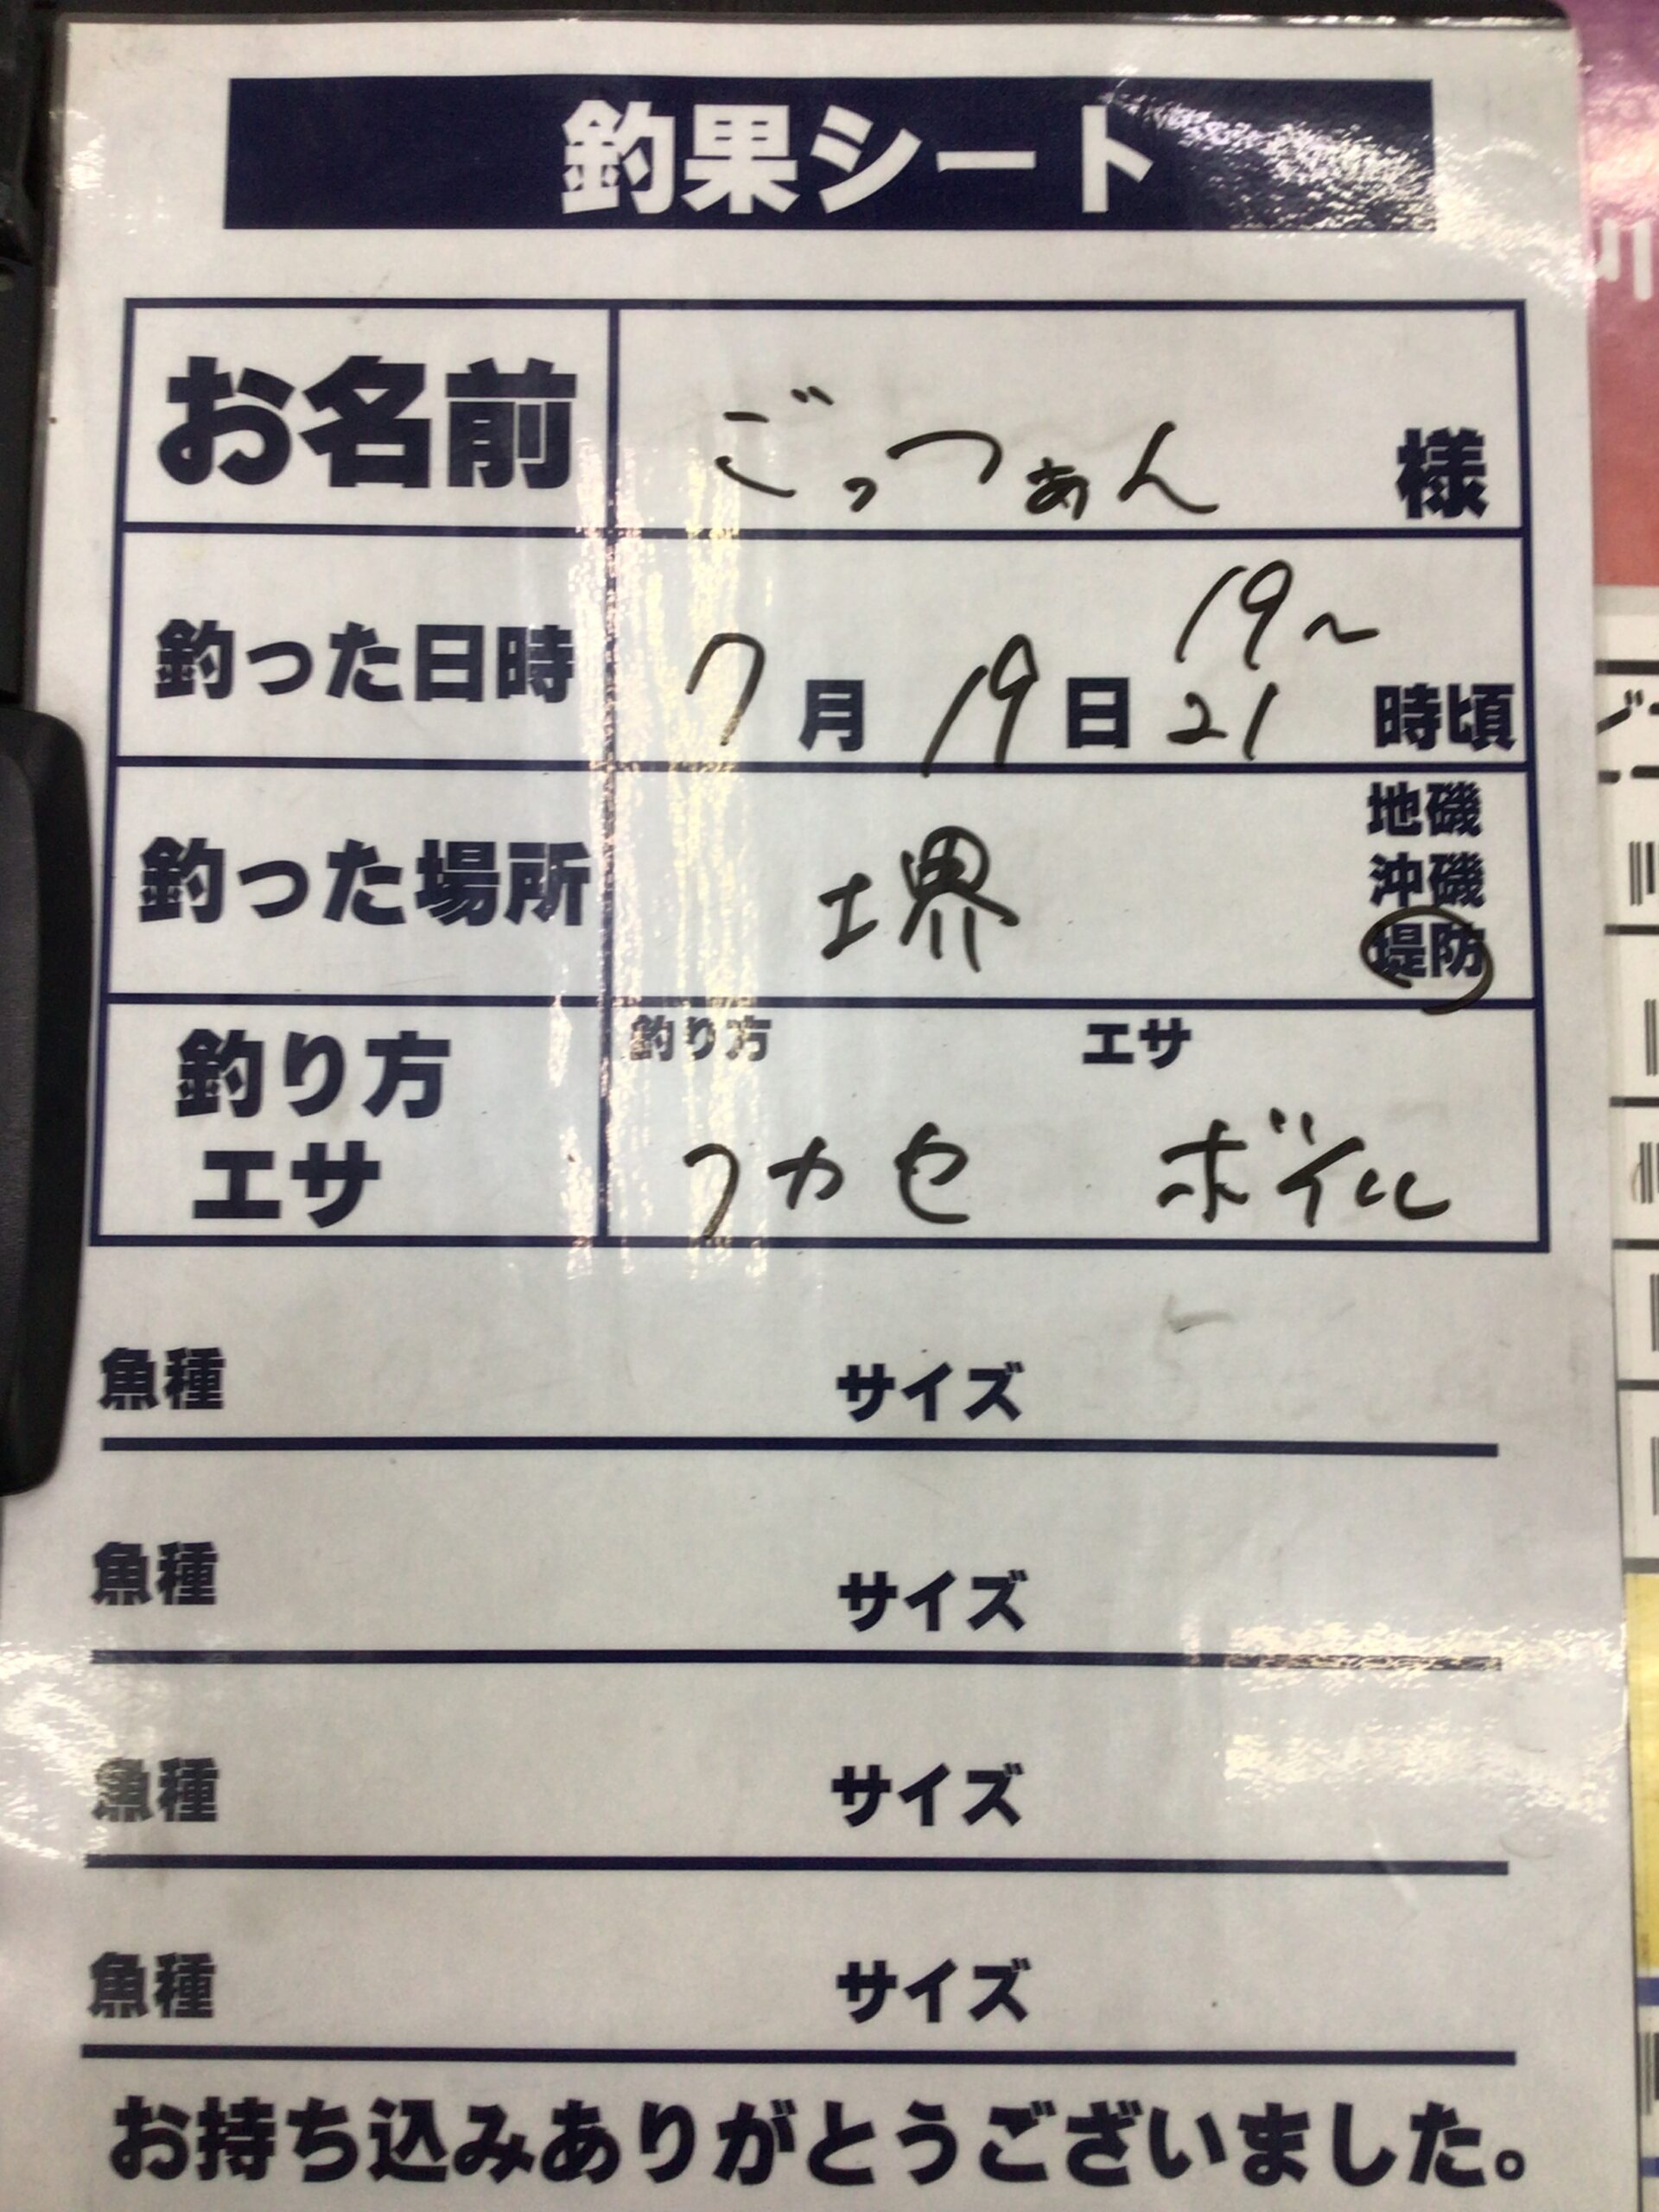 釣果シート
お名前 ごっつぁん 様
釣った日時 7月19日 19〜21 時頃
釣った場所 堺 地磯 沖磯 堤防
釣り方 エサ
釣り方 エサ
フカセ ボイル
魚種 サイズ
魚種 サイズ
魚種 サイズ
魚種 サイズ
お持ち込みありがとうございました。